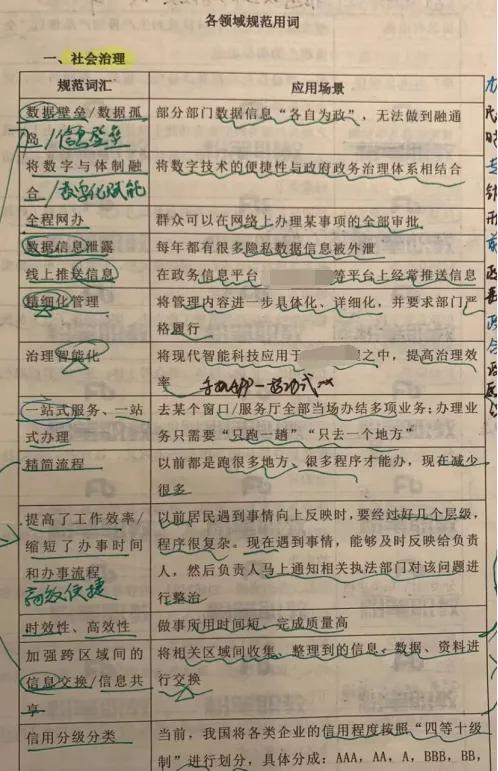 各领域规范用词
一、社会治理
规范词汇
应用场景
数据壁垒/数据孤
岛/信息壁垒
部分部门数据信息“各自为政”，无法做到融通
将数字与体制融
合/数字化赋能
将数字技术的便捷性与政府政务治理体系相结合
全程网办
群众可以在网络上办理某事项的全部审批
数据信息泄露
每年都有很多隐私数据信息被外泄
线上推送信息
在政务信息平台
等平台上经常推送信息
精细化管理
将管理内容进一步具体化、详细化，并要求部门严
格履行
治理智能化
将现代智能科技应用于
之中，提高治理效
率
一站式服务、一站
式办理
去某个窗口/服务厅全部当场办结多项业务；办理业
务只需要“只跑一趟”“只去一个地方”
精简流程
以前都是跑很多地方、很多程序才能办，现在减少
很多
提高了工作效率/
缩短了办事时间
和办事流程
高效便捷
以前居民遇到事情向上反映时，要经过好几个层级，
程序很复杂。现在遇到事情，能够及时反映给负责
人，然后负责人马上通知相关执法部门对该问题进
行整治
时效性、高效性
做事所用时间短、完成质量高
加强跨区域间的
信息交换/信息共
享
将相关区域间收集、整理到的信息、数据、资料进
行交换
信用分级分类
当前，我国将各类企业的信用程度按照“四等十级
制”进行划分，具体分成：AAA，AA，A，BBB，BB，